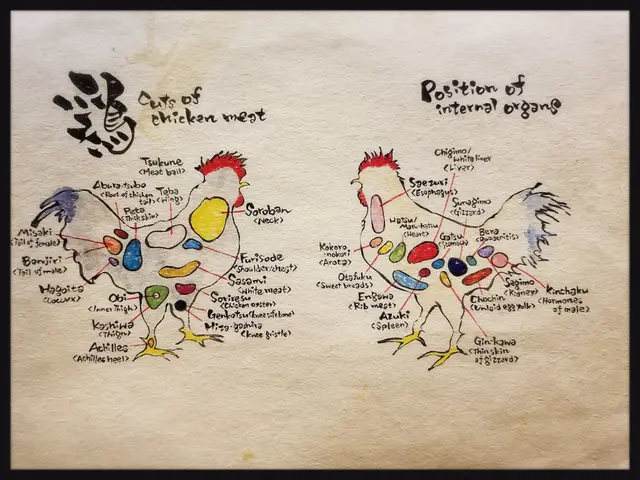 鶏
Cuts of
chicken meat
Tsukune
<Meat ball>
Aburatsubo
<Root of chicken
tail>
Teba
<Wing>
Peta
<Thick skin>
Soroban
<Neck>
Misaki
<Tail of female>
Bonjiri
<Tail of male>
Furisode
<Shoulder/chest>
Sasami
<White meat>
Hagoita
<Coccyx>
Obi
<Inner thigh>
Soriresu
<Chicken oyster>
Genkotsu<knee sirbone>
Kashiwa
<Thigh>
<knee gristle>
Achilles
<Achilles heel>
Position of
internal organs
Chigimo/
White liver
<Liver>
Saezuri
<Esophagus>
Sunagimo
<Gizzard>
Hatsu/
Maruhatsu
<Heart>
Gatsu
<Stomach>
Bera
Kokoro
nokori
<Aorta>
Otafuku
<Sweet breads>
Engawa
<Rib meat>
Sagimo
<Kidney>
Kinchaku
<Hormones
of male>
Chochin
Azuki
<Spleen>
Gin-kawa
<Thin skin
of gizzard>